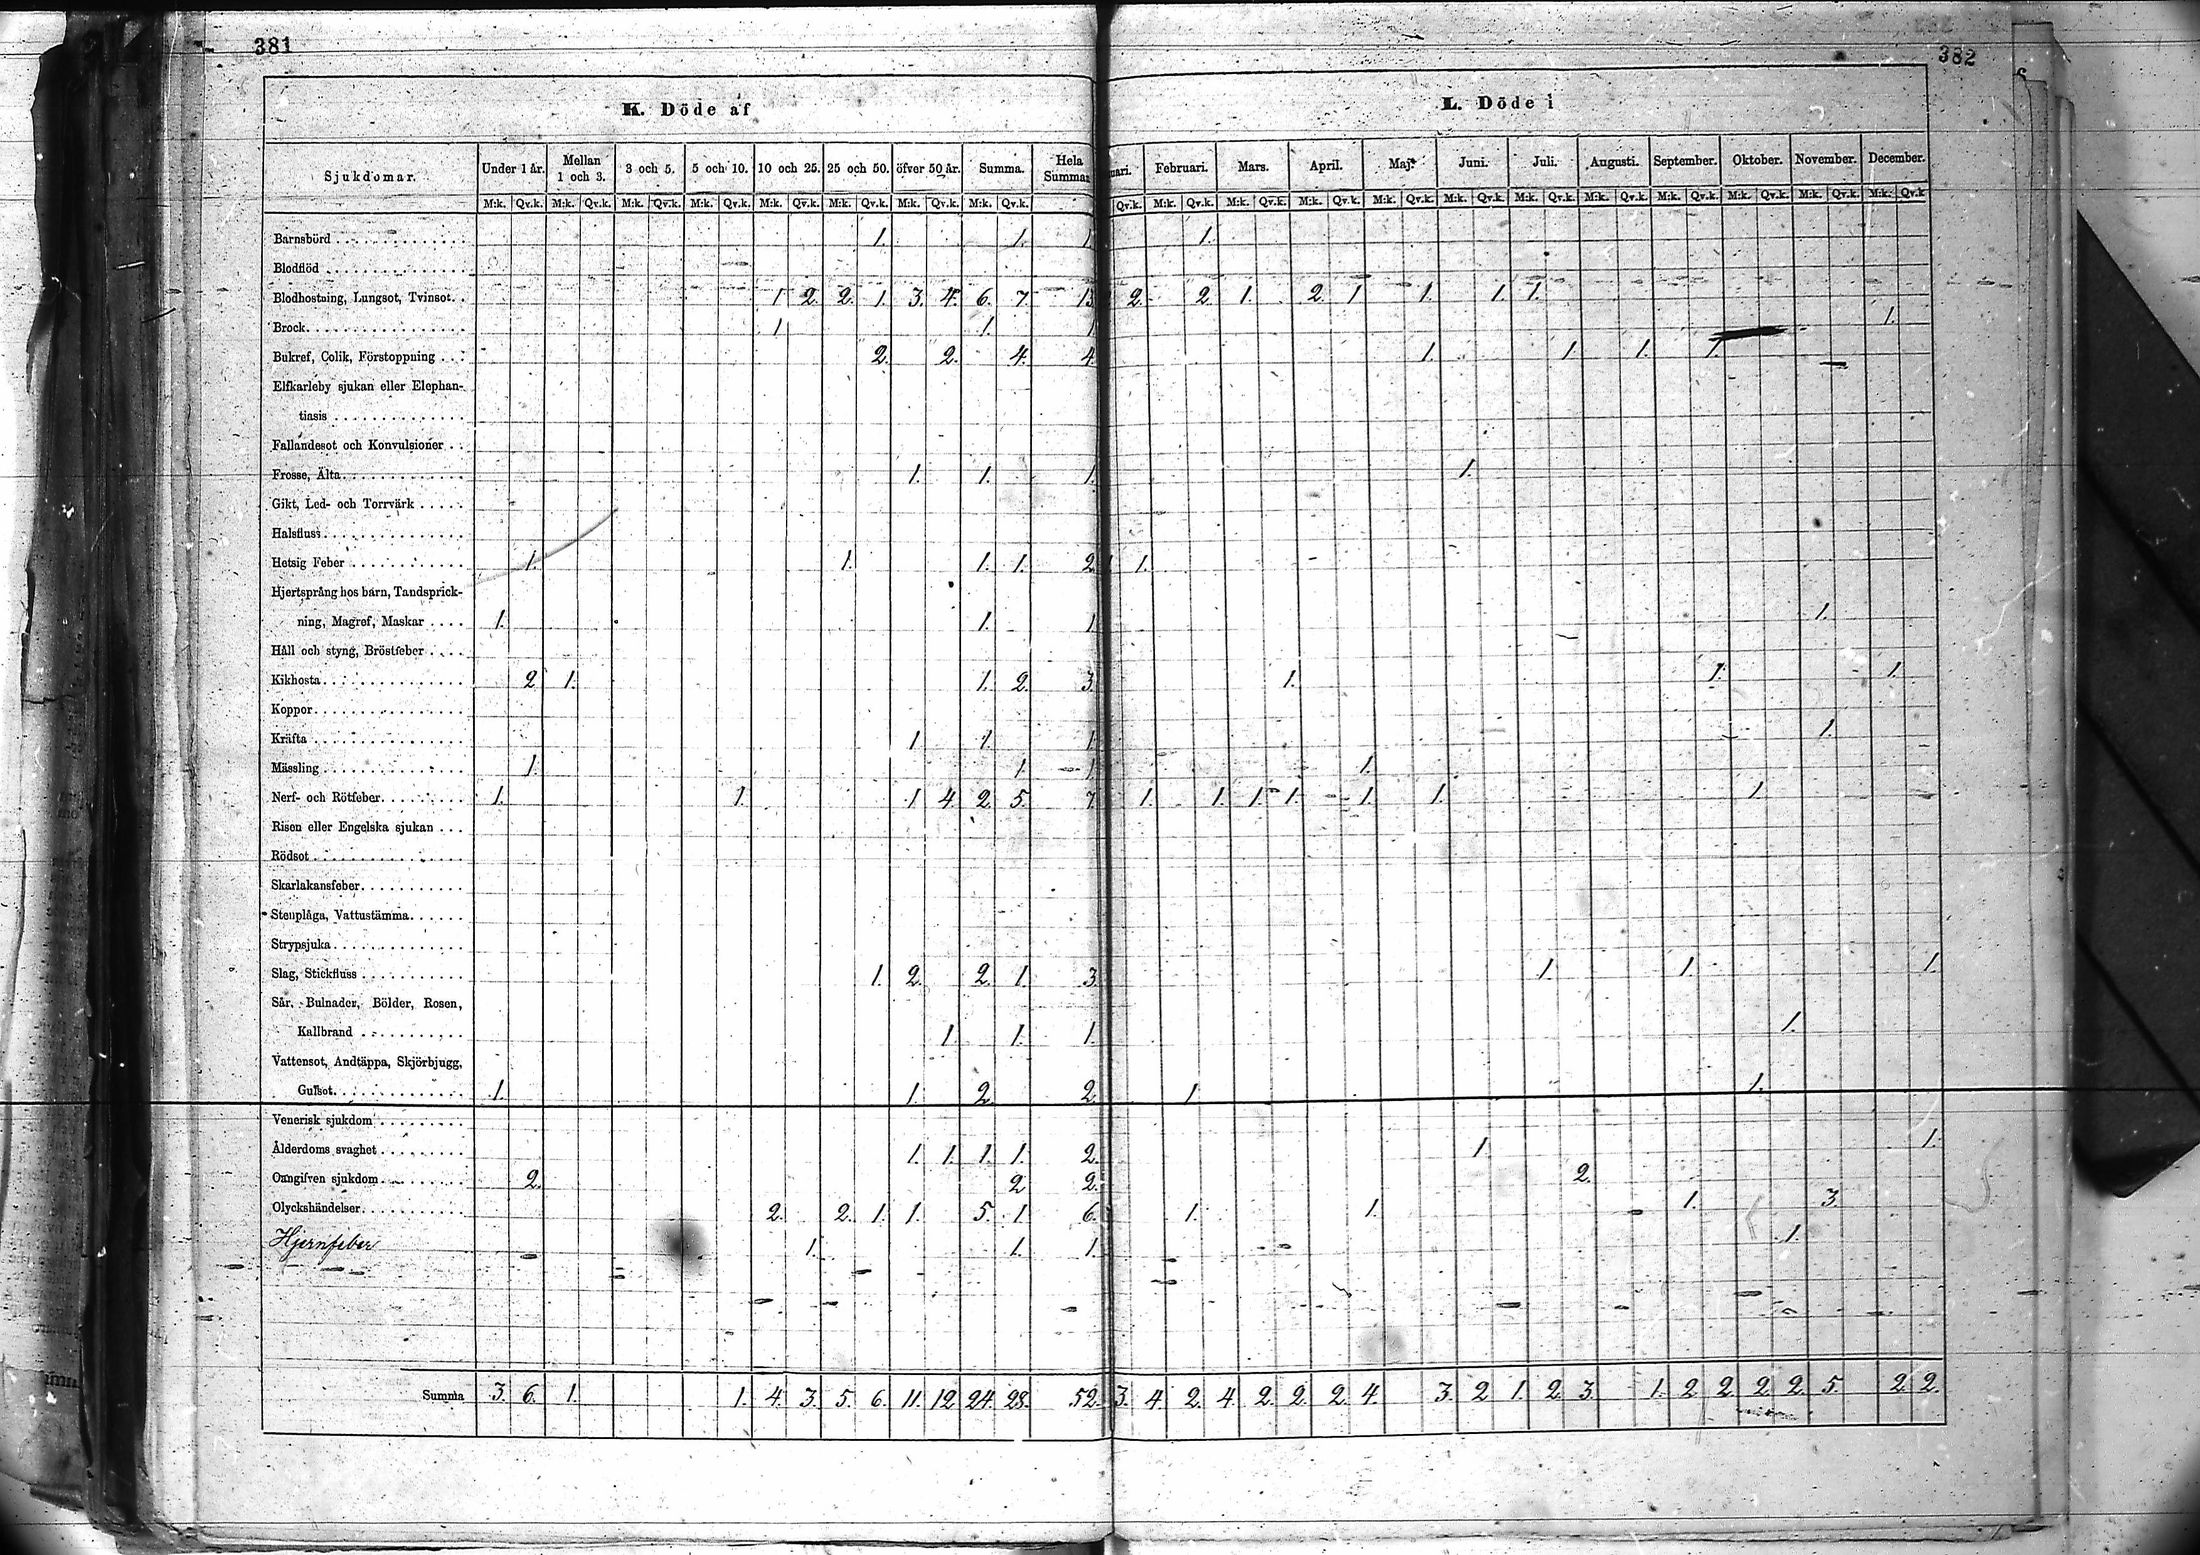 381
382
K. Döde af
L. Döde i
Sjukdomar. Under 1 år. Mellan 1 och 3. 3 och 5. 5 och 10. 10 och 25. 25 och 50. öfver 50 år. Summa. Hela Summan Februari. Mars. April. Maj. Juni. Juli. Augusti. September. Oktober. November. December.
M:k. Qv.k. M:k. Qv.k. M:k. Qv.k. M:k. Qv.k. M:k. Qv.k. M:k. Qv.k. M:k. Qv.k. M:k. Qv.k. Qv.k. M:k. Qv.k. M:k. Qv.k. M:k. Qv.k. M:k. Qv.k. M:k. Qv.k. M:k. Qv.k. M:k. Qv.k. M:k. Qv.k. M:k. Qv.k. M:k. Qv.k. M:k. Qv.k
Barnsbörd 1. 1. 1 1.
Blodflöd
Blodhostning, Lungsot, Tvinsot. 1 2. 2. 1. 3. 4. 6. 7. 13 2. 2. 1. 2. 1 1. 1. 1.
Brock 1 1. 1 1.
Bukref, Colik, Förstoppning 2. 2. 4. 4 1. 1. 1. 1.
Elfkarleby sjukan eller Elephan-
tiasis
Fallandesot och Konvulsioner
Frosse, Älta 1. 1. 1. 1.
Gikt, Led- och Torrvärk
Halsfluss
Hetsig Feber 1. 1. 1. 1. 2 1.
Hjertsprång hos barn, Tandsprick-
ning, Magref, Maskar 1. 1. 1 1.
Håll och styng, Bröstfeber
Kikhosta 2 1. 1. 2. 3. 1. 1. 1.
Koppor
Kräfta 1 1. 1 1.
Mässling 1. 1. 1 1.
Nerf- och Rötfeber 1. 1. 1 4 2. 5. 7 1. 1. 1. 1. 1. 1. 1.
Risen eller Engelska sjukan
Rödsot
Skarlakansfeber
Stenplåga, Vattustämma
Strypsjuka
Slag, Stickfluss 1. 2. 2. 1. 3. 1. 1. 1.
Sår, Bulnader, Bölder, Rosen,
Kallbrand 1. 1. 1. 1.
Vattensot, Andtäppa, Skjörbjugg,
Gulsot 1. 1. 2. 2. 1. 1.
Venerisk sjukdom
Ålderdoms svaghet 1. 1. 1. 1. 2. 1. 1.
Oangifven sjukdom 2. 2 2. 2.
Olyckshändelser 2. 2. 1. 1. 5. 1. 6. 1. 1. 1. 3.
Hjernfeber 1. 1. 1. 1.
Summa 3. 6. 1. 1. 4. 3. 5. 6. 11. 12 24. 28. 52. 3. 4. 2. 4. 2. 2. 2. 4. 3. 2. 1. 2. 3. 1. 2 2. 2. 2. 5. 2. 2.